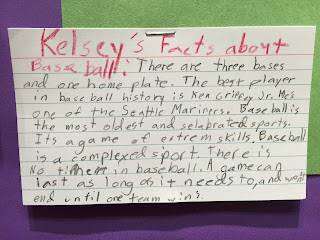 Kelsey's Facts about
Baseball: There are three bases
and one home plate. The best player
in baseball history is Ken Griffey Jr. He's
one of the Seattle Mariners. Baseball is
the most oldest and selabrated sports.
Its a game of extrem skills. Baseball
is a complexed sport. There is
No in baseball. A game can
last as long as it needs to, and won't
end until one team win's.